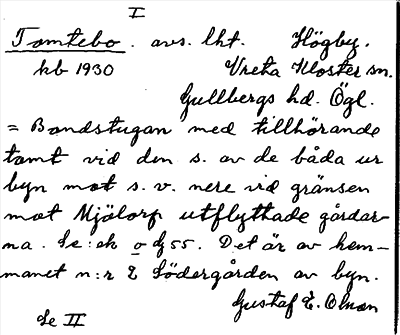 I
Tomtebo. avs. lht. Högby.
kb 1930 Vreta Kloster sn.
Gullbergs hd. Ögl.
= Bondstugan med tillhörande
tomt vid den s. av de båda ur
byn mot s. v. nere vid gränsen
mot Mjölorp utflyttade gårdar-
na. Se: ek o Dj 55. Det är av hem-
manet n:r 2 Södergården av byn.
Gustaf E. Olson
Se II